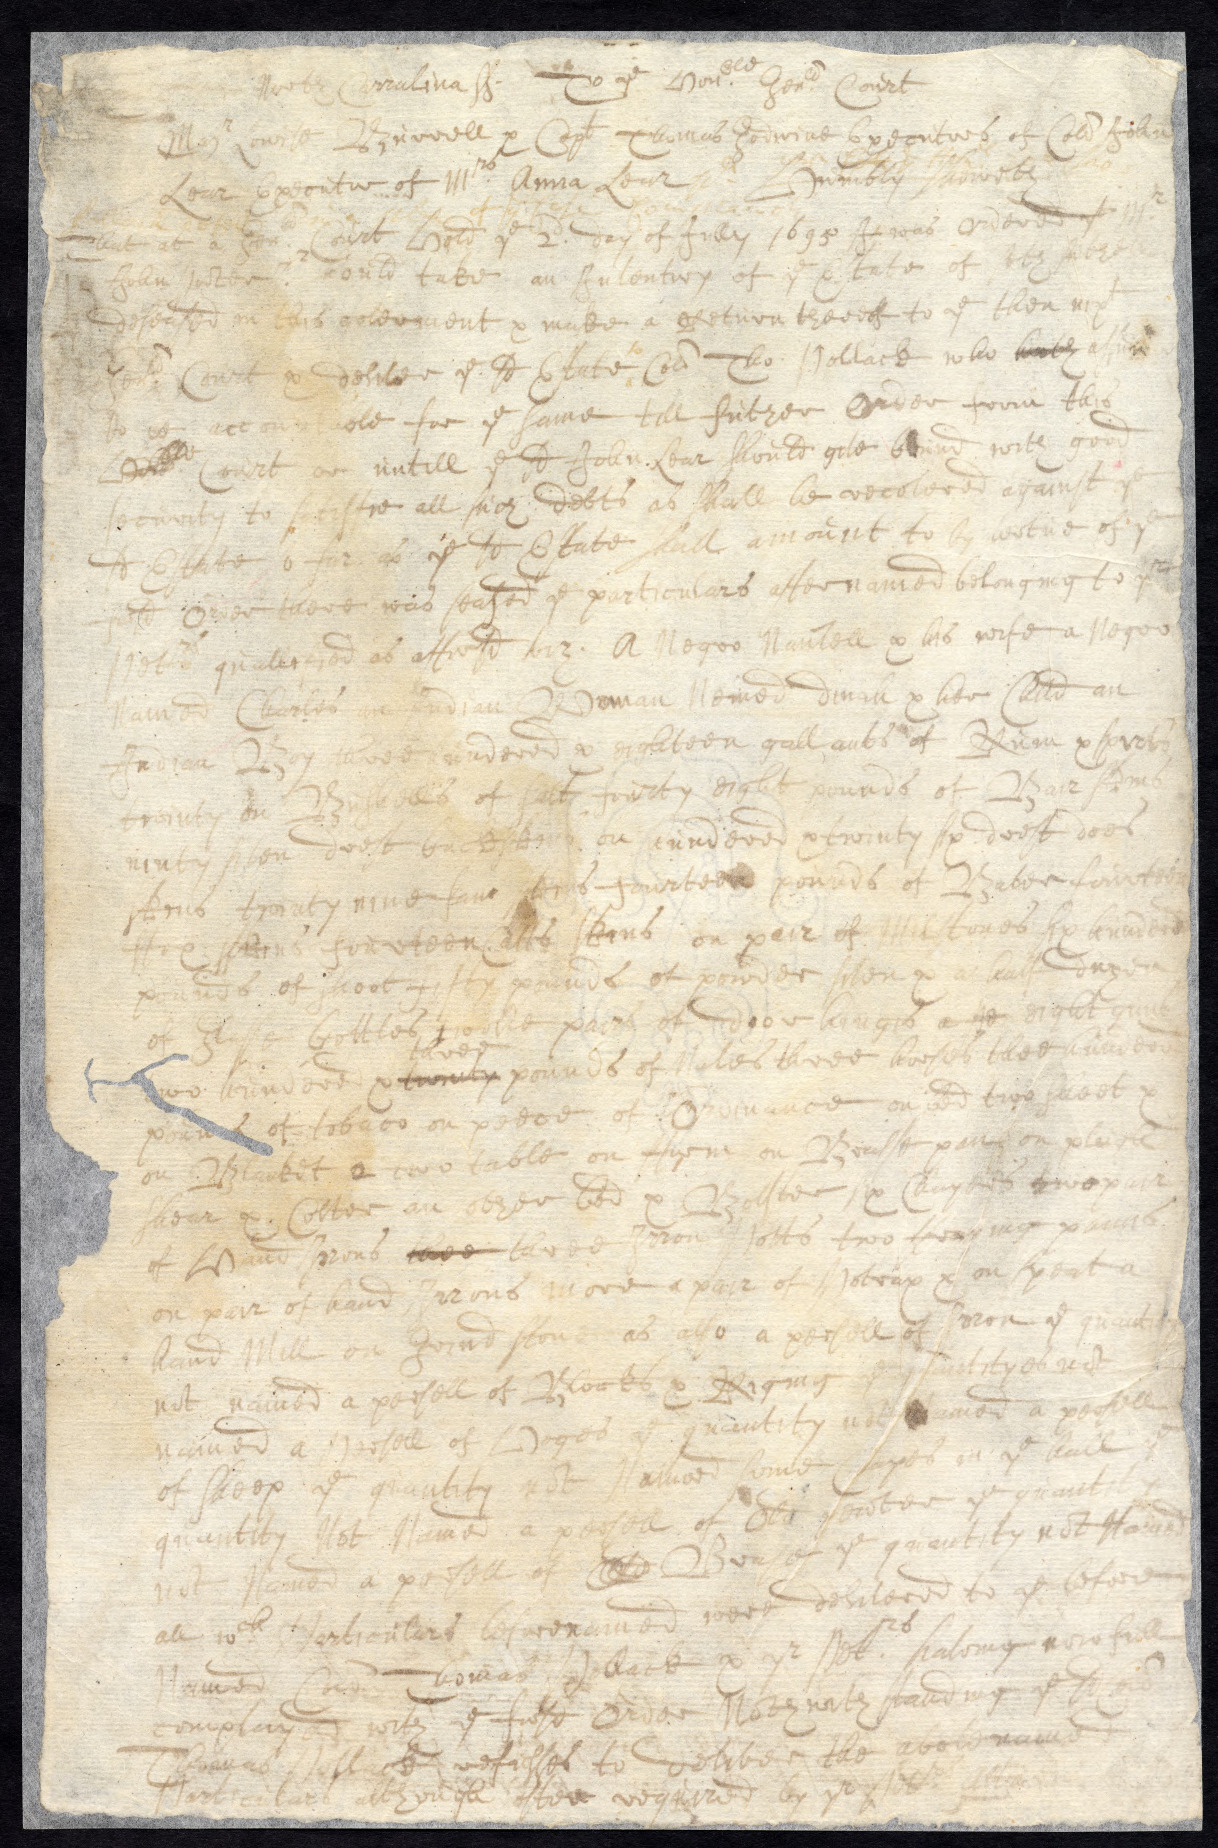 North Carrolina ss. To ye Honble Genll Court
Majr Lewise Burwell & Capt Thomas Godwine Executors of Coll John
Lear Executor of Mrs Anna Lear Humbly Sheweth
that at a Genll Court Held ye 2d day of July 1695 It was Ordered yt Mr
John Porter should take an Inventory of ye Estate of
deseased in this goverment & make a Returne thereof to ye then nixt
Genll Court & deliver ye sd Estate to Coll Tho Pollack who hath
to be accountable for ye same till further Order from this
Honble Court or untill ye sd John Lear should give bound with good
security to all such debts as shall be recovered against ye
sd Estate so far as ye sd Estate shall amount to by vertue of ye
sd Order there was seased ye particulars after named belonging to yr
Petrs qualefied as afforesd viz. A Negro Manuell & his wife a Negro
Named Charles an Indian Woman Nemed dinah & her Child an
Indian Boy three hundered & eighteen gallants of Rum & spirits
twinty on Bushells of salt fourty eight pounds of Bair skins
ninty seven drest buckskins on hundered & twinty six drest does
skins twinty nine fawn skins fourteen pounds of Baber fourteen
fox skins fourteen Catts skins on pair of Milstones six hundered
pounds of shoot fifty pounds of powder seven & a half duzen
of Glass bottles twelve pairs of doore hinges eight guns
two hundered & twinty three pounds of Nales three horses three hundered
pounds of tobaco on peece of Ordinance on bed two sheet &
on Blanket 2 two table on on Brass pann on plewll
shear & Colter an other bed & Bolster six Chayers two pair
of Hand Irons thee three Irron Potts two frying panns
on pair of hand Irrons more a pair of Potrax & on speat a
hand Mill on Grind stone as also a persell of Irron ye quantity
not named a persell of Blocks & Riging ye quantityes not
named a Persell of Hoges ye quantity not Named a persell
of sheep ye quantity not Named some on ye ye
quantity Not Named a persell of Old pewter ye quantity
not Named a persell of Old Brase ye quantity not Named
all wch Particulars beforenamed were delivered to ye before
Named Coll Thomas Pollack & yr Petrs haveing now full
complayed with ye first Order Nothwithstanding ye sd Coll
Thomas Pollack refuses to deliver the abovenamed
Particulars although often required by yr Petrs